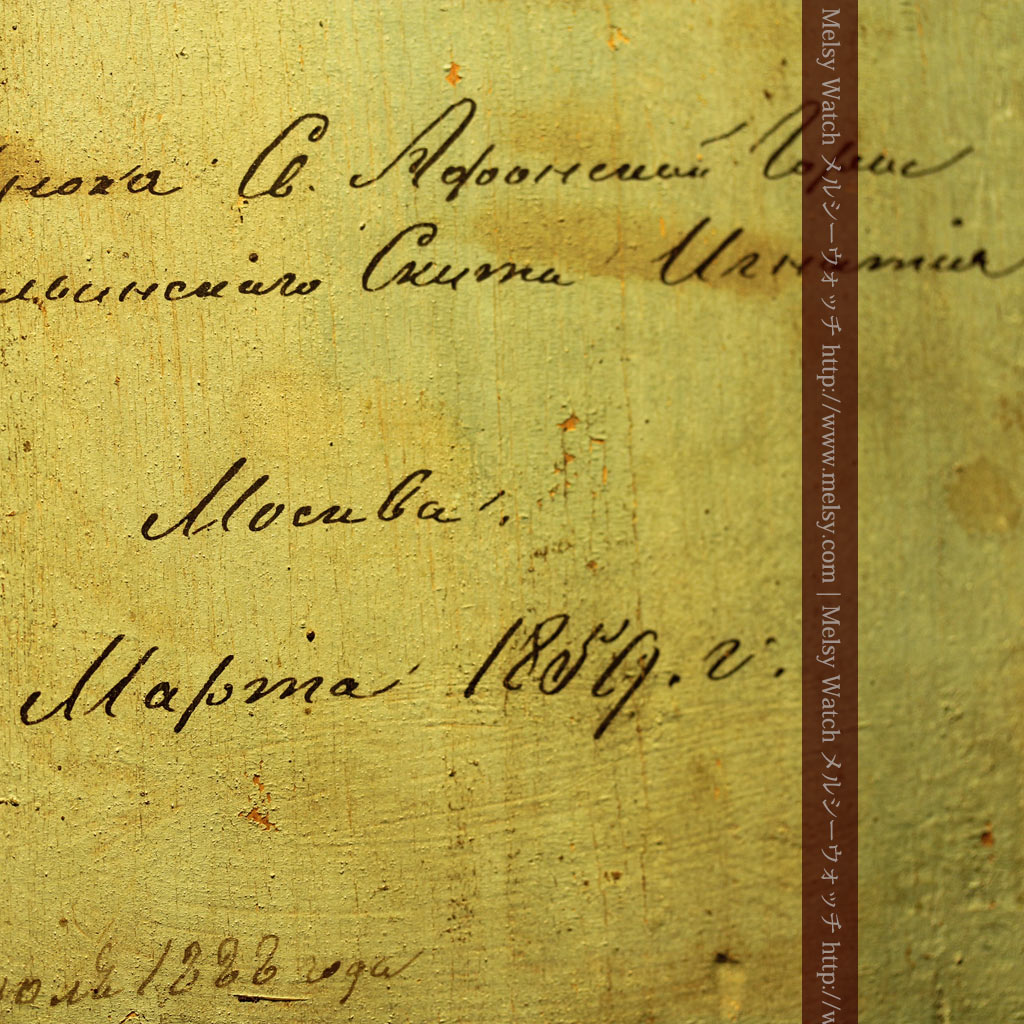 нока Св. Афонской Горы
льинскаго Скита Игнатія
Москва.
Марта 1859. г.
юля 1888 года
Melsy Watch メルシーウォッチ http://www.melsy.com | Melsy Watch メルシーウォッチ http://w